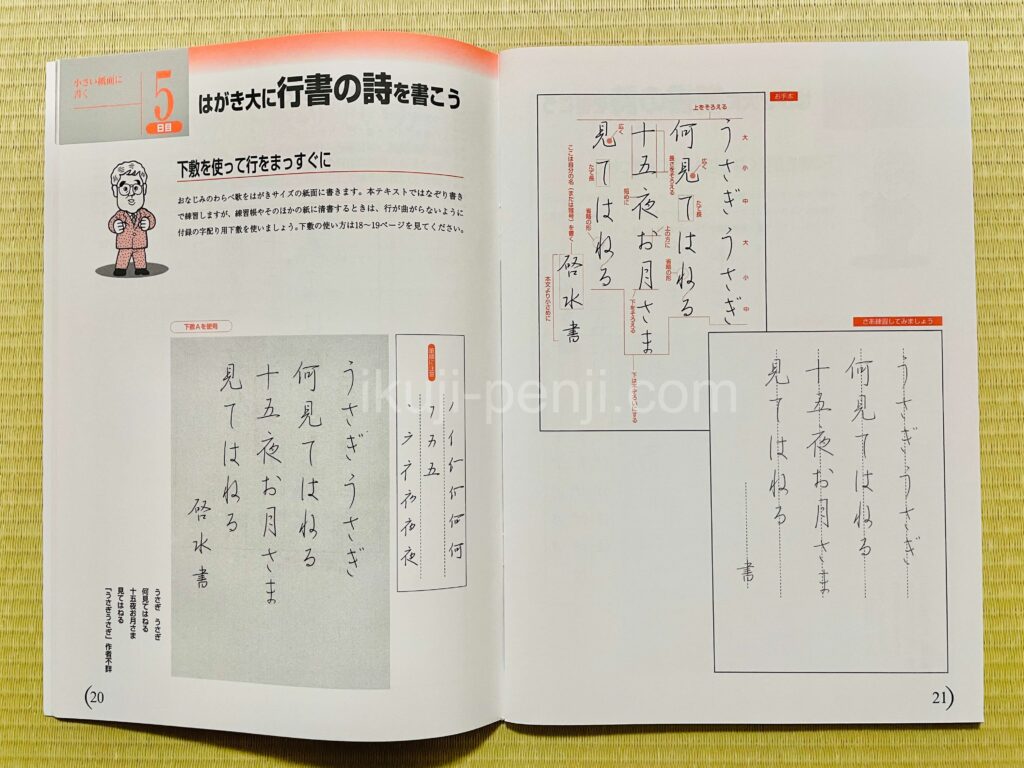 小さい紙面に
書く
5
日目
はがき大に行書の詩を書こう
下敷を使って行をまっすぐに
おなじみのわらべ歌をはがきサイズの紙面に書きます。本テキストではなぞり書き
で練習しますが、練習帳やそのほかの紙に清書するときは、行が曲がらないように
付録の字配り用下敷を使いましょう。下敷の使い方は18〜19ページを見てください。
下敷Aを使用
うさぎうさぎ
何見てはねる
十五夜お月さま
見てはねる
啓水書
筆順に注意
何
五
夜
うさぎ うさぎ
何見てはねる
十五夜お月さま
見てはねる
「うさぎうさぎ」作者不詳
20
お手本
上をそろえる
大
小
中
大
小
中
うさぎうさぎ
何見てはねる
十五夜お月さま
見てはねる
啓水書
広く
長さをそろえる
たて長
省略の形
短めに
上の方に
下をそろえる
広く
たて長
省略の形
ここは自分の名(または雅号)を書く
本文より小さめに
下は不ぞろいにする
さあ練習してみましょう
うさぎうさぎ
何見てはねる
十五夜お月さま
見てはねる
書
21
ikuji-penji.com